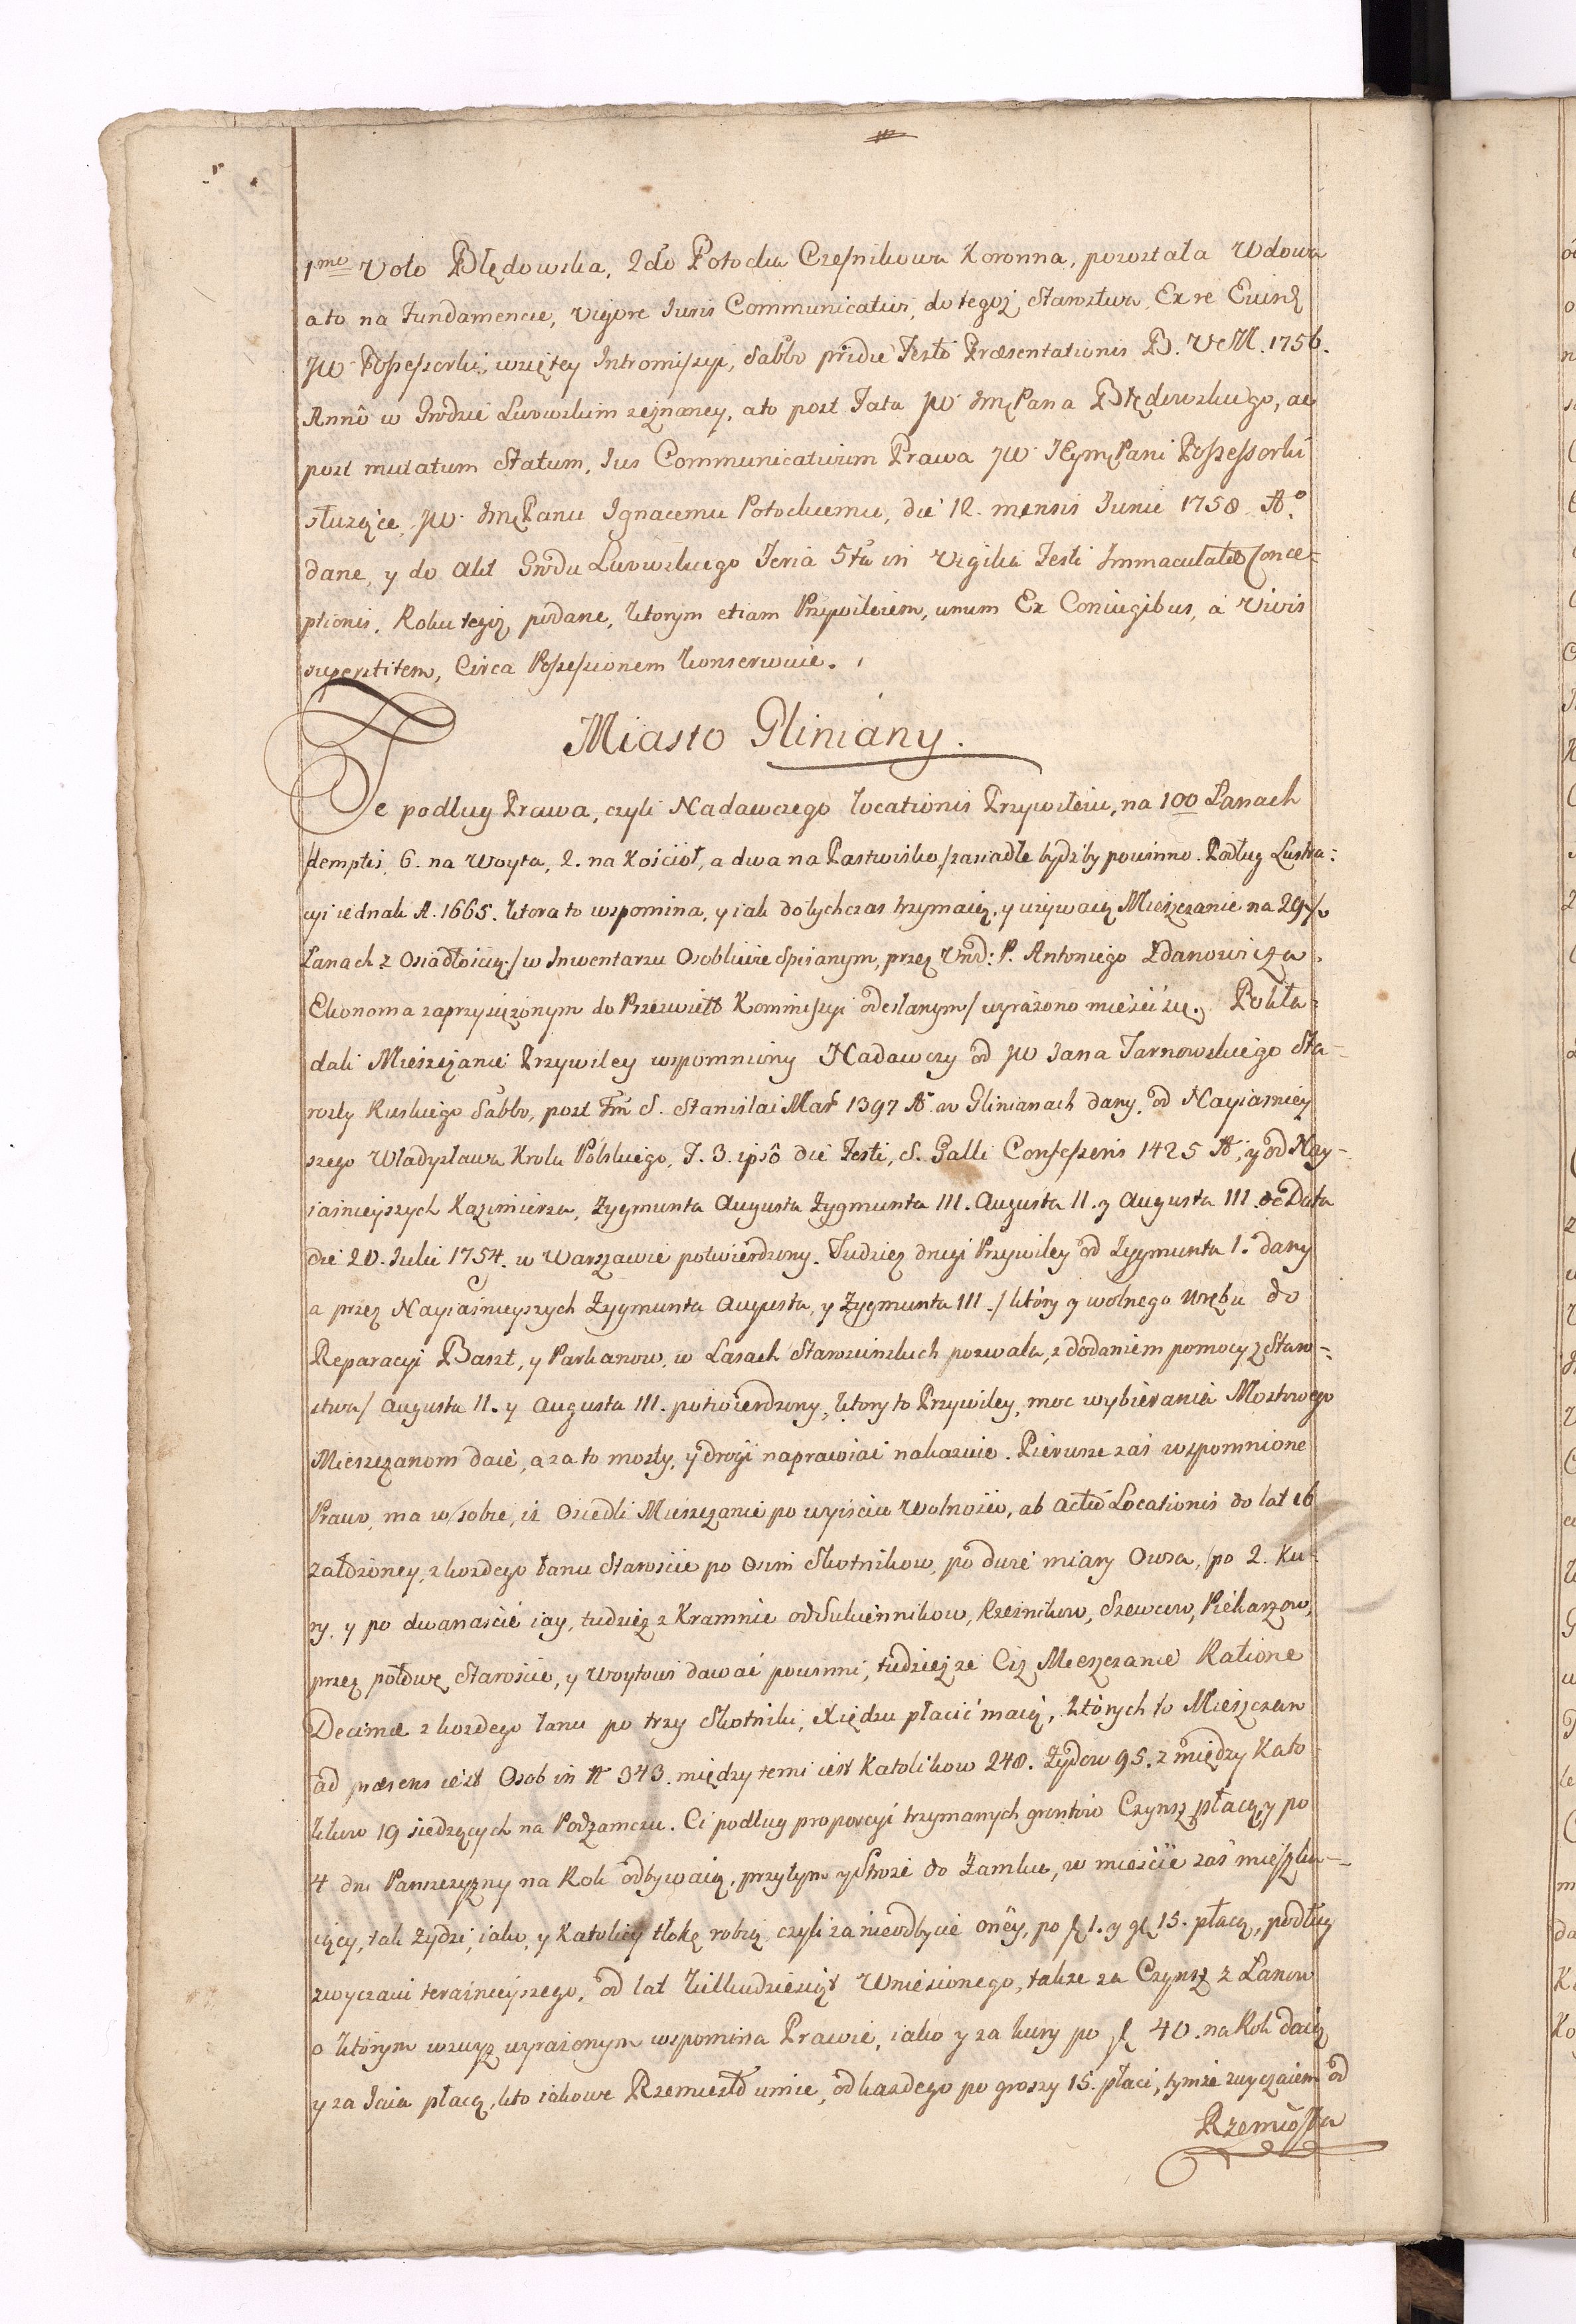 1mo Voto Błędowska, 2do Potocka Czesnikowa Koronna, pozostała Wdowa
a to na Fundamencie, vigore Iuris Communicativi, do tegoż Starostwa, Ex re
JW Possessorki, wziętey Intromissyi, Sabbo pridie Festi Præsentationis B. V. M. 1756.
Anno w Grodzie Lwowskim zeznaney, a to post Fata JW JmęPana Błędowskiego, ac
post mutatum Statum, Ius Communicativum Prawa JW JEymęPani Possessorki
służące, JW JmęPanu Ignacemu Potockiemu, die 12 mensis Iunii 1758 Ao
dane, y do Akt Grodu Lwowskiego Feria 5ta in Vigilia Festi Immaculatæ Conce=
ptionis, Roku tegoż podane, którym etiam Przywileiem, unum Ex Coniugibus, a vivis
superstitem, Circa Possessionem konserwuie.
Miasto Gliniány.
Te podług Prawa, czyli Nadawczego locationis Przywileiu, na 100 Łanach
demptis, 6. na Woyta, 2. na Kościoł, a dwa na Pastwisko, zasiadłe bydźby powinno. Podług Lustra=
cyi iednak A. 1665. ktora to wspomina, y iak dotychczas trzymaią, y używaią Mieszczanie na 29½
Łanach z Osiadłością / w Inwentarzu Osobliwie spisanym, przez Urod: P. Antoniego Zdanowicza
Ekonoma zaprzysiężonym do Przeświett Kommissyi odesłanym / wyrażono mieści się. Pokła=
dali Mieszczanie Przywiley wspomniony Nadawczy od JW Jana Tarnowskiego Sta=
rosty Ruskiego Sabbo, post Fm S. Stanislai Mar 1397 Ao w Glinianach dany, od Nayiasniey
szego Władysława Krola Polskiego, F. 3. ipsô die Festi, S. Galli Confessoris 1425 Ao, y od Nay=
iasnieyszych Kazimierza, Zygmunta Augusta Zygmunta III. Augusta II. y Augusta III. de Data
die 20. Iulii 1754. w Warszawie potwierdzony. Tudzież drugi Przywiley od Zygmunta I. dany
a przez Nayiaśnieyszych Zygmunta Augusta, y Zygmunta III. / który y wolnego wrębu do
Reparacyi Baszt, y Parkanow, w Lasach Starościnskich pozwala, z dodaniem pomocy z Staro=
stwa / Augusta II. y Augusta III. potwierdzony, ktory to Przywiley, moc wybierania Mostowego
Mieszczanom daie, a za to mosty, y drogi naprawiać nakazuie. Pierwsze zaś wspomnione
Prawo, ma w sobie, iż Osiedli Mieszczanie po wyiściu Wolności, ab actu Locationis do lat 16
założoney, z każdego łanu Staroście po Osm Skotnikow, po dwie miary Owsa, po 2. Ku=
ry, y po dwanaście iay, tudzież z Kramnic od Sukiennikow, Rzeznikow, Szewcow, Piekarzow,
przez połowę Staroście, y Woytowi dawać powinni, tudzież ze Ciż Mieszczanie Ratione
Decimæ z każdego łanu po trzy Skotniki, Xiędzu płacić maią, których to Mieszczan
ad præsens iest Osob in No 343. między temi iest Katolikow 248. Żydow 95. z między Kato
likow 19 siedzących na Podzamczu. Ci podług proporcyi trzymanych gruntow Czynsz płacą, y po
4 dni Panszczyzny na Rok odbywaią, przytym y Stroże do Zamku, w mieście zaś mieszka=
iący, tak Żydzi, iako, y Katolicy tłokę robią czyli za nieodbycie oney, po zł 1. y gr 15. płacą, podług
zwyczaiu teraznieyszego, od lat kilkudziesiąt Wniesionego, także za Czynsz z Łanow
o którym wzwyż wyrażonym wspomina Prawie, iako y za kury po zł 40. na Rok daią
y za Iaia płacą, kto iakowe Rzemiesło umie, od każdego po groszy 15. płaci, tymże zwyczaiem od
Rzemiosła